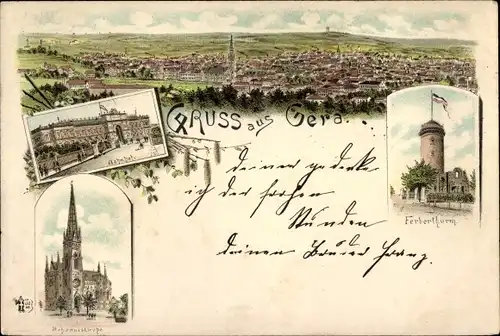 Gruss aus Gera.
Bahnhof.
Ferberthurm
Johanniskirche
deiner gedenke
ich der frohen
Stunden
deinen Bruder Franz.